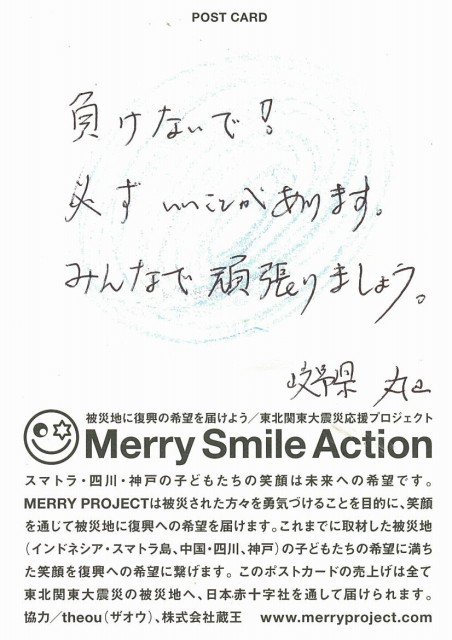 POST CARD
負けないで!
必ず いいことがあります。
みんなで頑張りましょう。
岐阜県 丸山
被災地に復興の希望を届けよう/東北関東大震災応援プロジェクト
Merry Smile Action
スマトラ・四川・神戸の子どもたちの笑顔は未来への希望です。
MERRY PROJECTは被災された方々を勇気づけることを目的に、笑顔
を通じて被災地に復興への希望を届けます。これまでに取材した被災地
(インドネシア・スマトラ島、中国・四川、神戸)の子どもたちの希望に満ち
た笑顔を復興への希望に繋げます。このポストカードの売上げは全て
東北関東大震災の被災地へ、日本赤十字社を通して届けられます。
協力/theou(ザオウ)、株式会社蔵王 www.merryproject.com